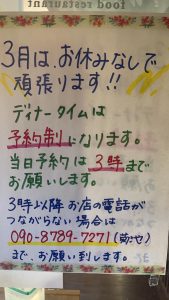 food restaurant
3月は、お休みなしで
頑張ります!!
ディナータイムは
予約制になります。
当日予約は3時まで
お願いします。
3時以降お店の電話が
つながらない場合は
090-8789-7271(菊や)
まで、お願い致します。